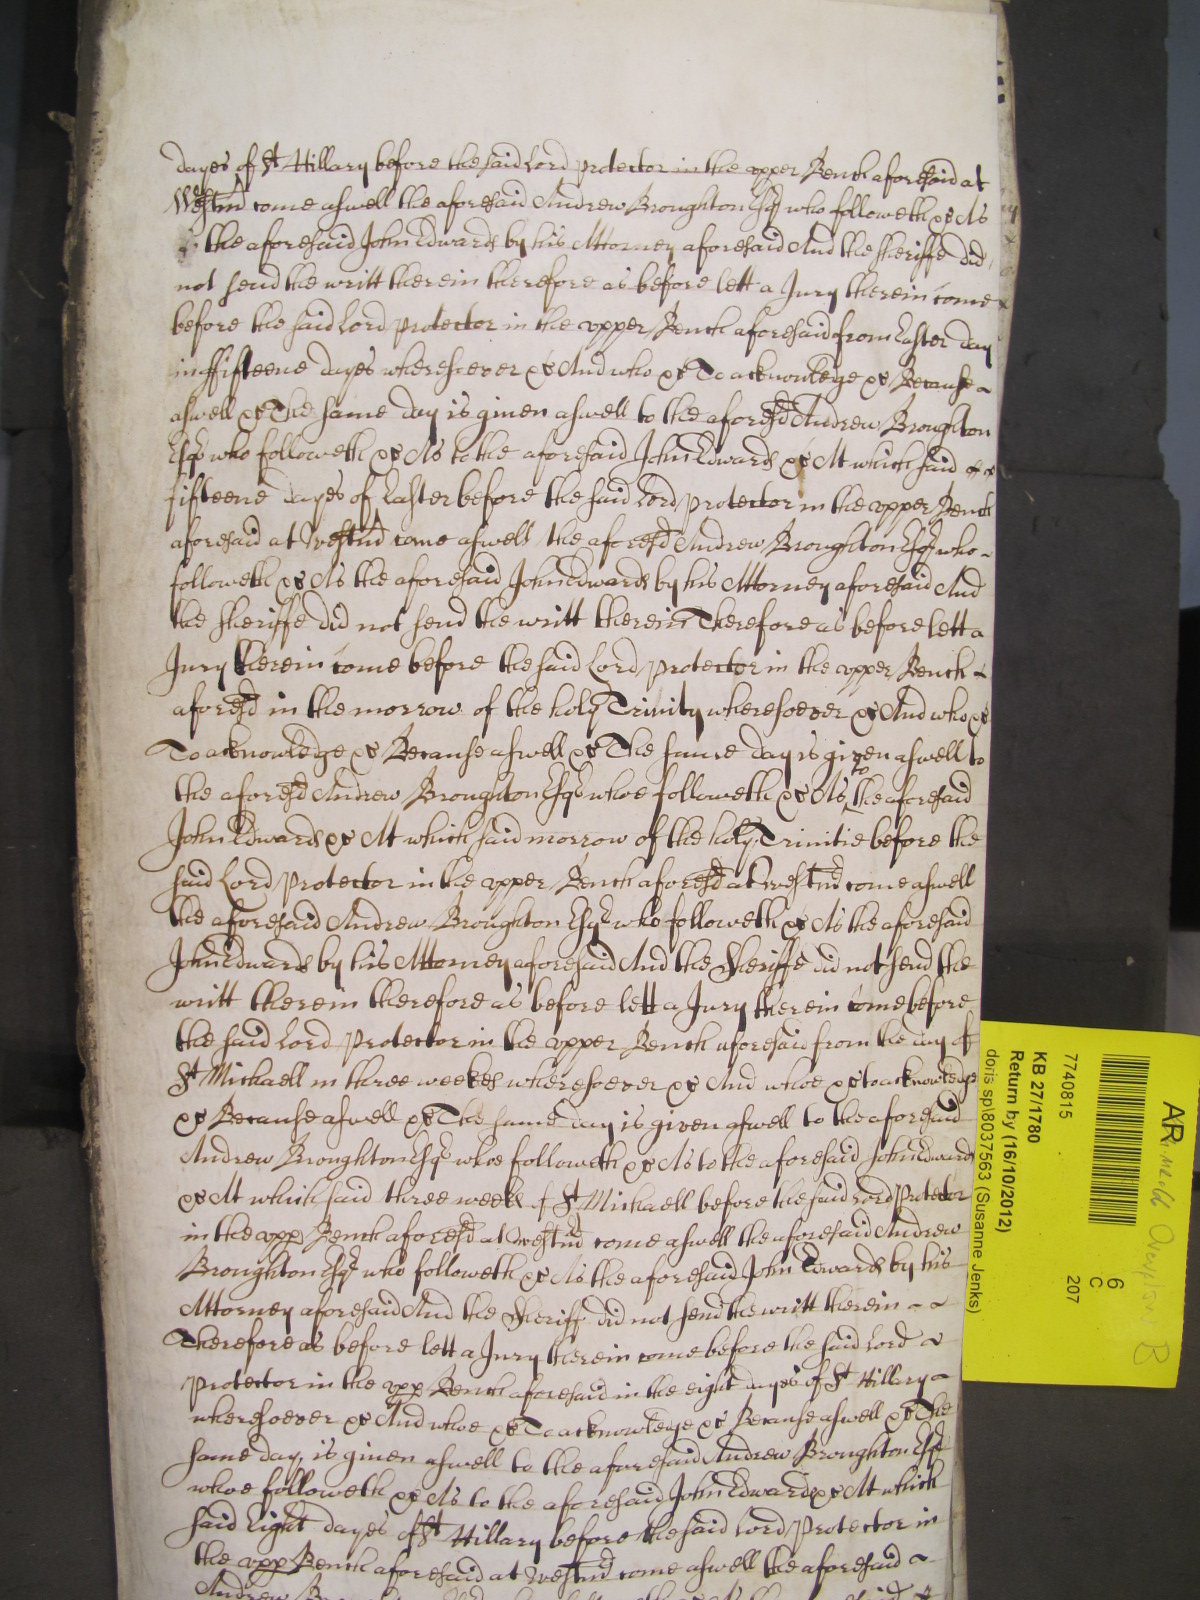 dayes of St Hillary before the said Lord Protector in the upper Bench aforesaid at
Westmr come aswell the aforesaid Andrew Broughton Esqr who followeth &c As
the aforesaid John Edwards by his Attorney aforesaid And the Sheriffe did
not send the writt therein therefore as before lett a Jury therein come
before the said Lord Protector in the upper Bench aforesaid from Easter day
in ffifteene dayes wheresoever &c And who &c To acknowledge &c Because
aswell &c The same day is given aswell to the aforesd Andrew Broughton
Esqr who followeth &c As to the aforesaid John Edwards &c At which said
fifteene dayes of Easter before the said Lord Protector in the upper Bench
aforesaid at Westmr come aswell the aforesd Andrew Broughton Esqr who
followeth &c As the aforesaid John Edwards by his Attorney aforesaid And
the Sheriffe did not send the writt therein Therefore as before lett a
Jury therein come before the said Lord Protector in the upper Bench
aforesd in the morrow of the holy Trinity wheresoever &c And who &c
To acknowledge &c Because aswell &c The same day is given aswell to
the aforesd Andrew Broughton Esqr whoe followeth &c As to the aforesaid
John Edwards &c At which said morrow of the holy Trinitie before the
said Lord Protector in the upper Bench aforesd at Westmr come aswell
the aforesaid Andrew Broughton Esqr who followeth &c As the aforesaid
John Edwards by his Attorney aforesaid And the Sheriffe did not send the
writt therein therefore as before lett a Jury therein come before
the said Lord Protector in the upper Bench aforesaid from the day of
St Michaell in three weekes wheresoever &c And whoe &c to acknowledge
&c Because aswell &c The same day is given aswell to the aforesaid
Andrew Broughton Esqr whoe followeth &c As to the aforesaid John Edwards
&c At which said three weeks of St Michaell before the said Lord Protector
in the upp Bench aforesd at Westmr come aswell the aforesaid Andrew
Broughton Esqr who followeth &c As the aforesaid John Edwards by his
Attorney aforesaid And the Sheriff did not send the writt therein
Therefore as before lett a Jury therein come before the said Lord
Protector in the upp Bench aforesaid in the eight dayes of St Hillary
wheresoever &c And whoe &c To acknowledge &c Because aswell &c The
same day is given aswell to the aforesaid Andrew Broughton Esqr
whoe followeth &c As to the aforesaid John Edwards &c At which
said Eight dayes of St Hillary before the said Lord Protector in
the upp Bench aforesaid at Westmr come aswell the aforesaid
Andrew
AR
B
6
C
207
7740815
KB 27/1780
Return by (16/10/2012)
doris sp\8037563 (Susanne Jenks)